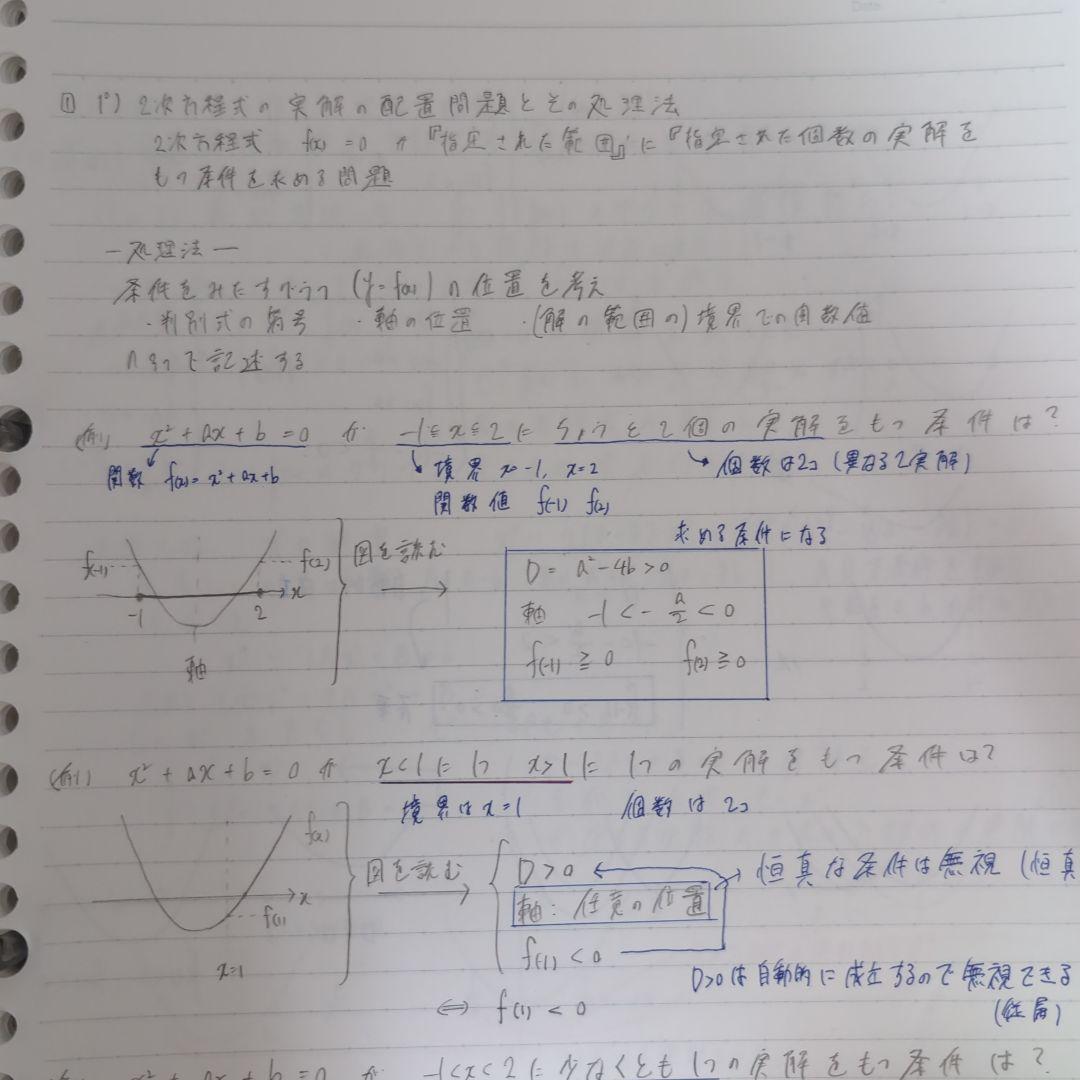 ① 1°) 2次方程式の実解の配置問題とその処理法
2次方程式 f(x) = 0 が『指定された範囲』に『指定された個数の実解を
もつ条件を求める問題
— 処理法 —
条件をみたすグラフ (y=f(x)) の位置を考え
・判別式の符号 ・軸の位置 ・(解の範囲の) 境界での関数値
の3つで記述する
(例1) x² + ax + b = 0 が -1≦x≦2に ちょうど2個の実解をもつ条件は?
関数 f(x) = x² + ax + b
境界 x=-1, x=2
個数は2コ (異なる2実解)
関数値 f(-1) f(2)
求める条件になる
f(-1)
f(2)
x
-1
2
軸
図を読む
D = a² - 4b > 0
軸 -1 < - a/2 < 0
f(-1) ≧ 0 f(2) ≧ 0
(例1) x² + ax + b = 0 が x<1に1つ x>1に1つの実解をもつ条件は?
境界は x=1 個数は2コ
f(x)
x
f(1)
x=1
図を読む
D > 0
軸: 任意の位置
f(1) < 0
恒真な条件は無視 (恒真
D>0は自動的に成立するので無視できる
⇔ f(1) < 0
x² + ax + b = 0 が -1<x<2に少なくとも1つの実解をもつ条件は?